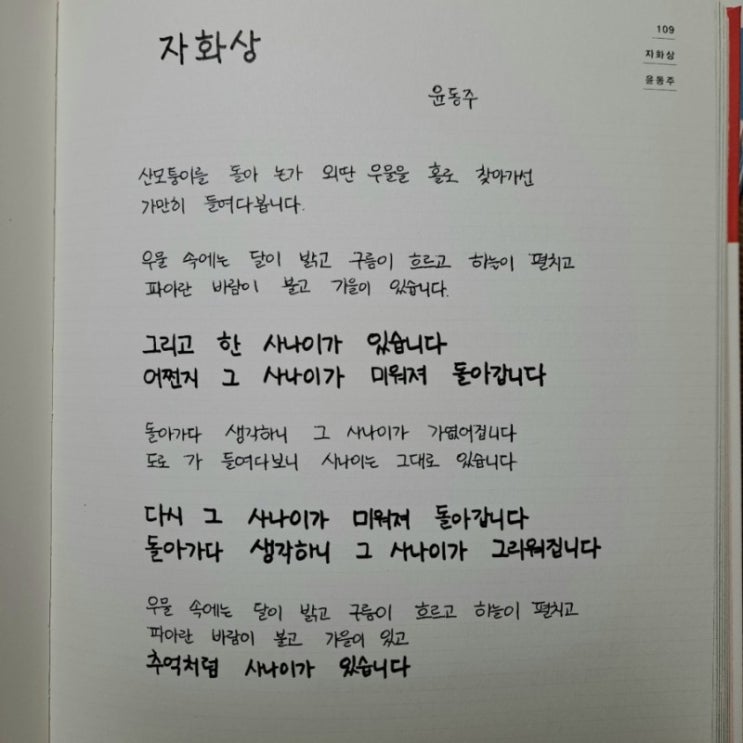 자화상
윤동주
109
자화상
윤동주
산모퉁이를 돌아 논가 외딴 우물을 홀로 찾아가선
가만히 들여다봅니다.
우물 속에는 달이 밝고 구름이 흐르고 하늘이 펼치고
파아란 바람이 불고 가을이 있습니다.
그리고 한 사나이가 있습니다
어쩐지 그 사나이가 미워져 돌아갑니다
돌아가다 생각하니 그 사나이가 가엾어집니다
도로 가 들여다보니 사나이는 그대로 있습니다
다시 그 사나이가 미워져 돌아갑니다
돌아가다 생각하니 그 사나이가 그리워집니다
우물 속에는 달이 밝고 구름이 흐르고 하늘이 펼치고
파아란 바람이 불고 가을이 있고
추억처럼 사나이가 있습니다